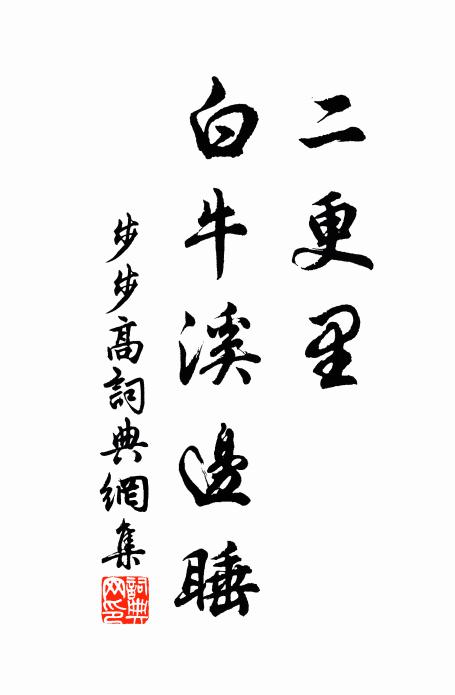 二更里
白牛溪邊睡
步步高詞典網集
詞典
网印